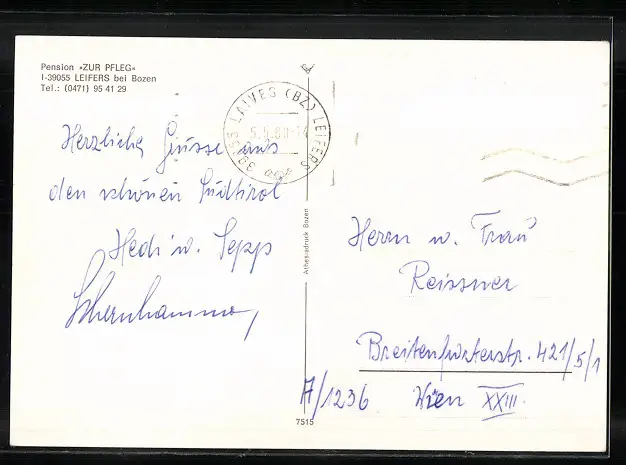 Pension »ZUR PFLEG«
I-39055 LEIFERS bei Bozen
Tel.: (0471) 95 41 29
39055 LAIVES (BZ) LEIFERS
5.5.80
Herzliche Grüsse aus
den schönen Südtirol
Hedi u. Sepp
Athesiadruck Bozen
Herrn u. Frau
Reissner
Breitenfurterstr. 421/5/1
A/1236 Wien XXIII.
7515